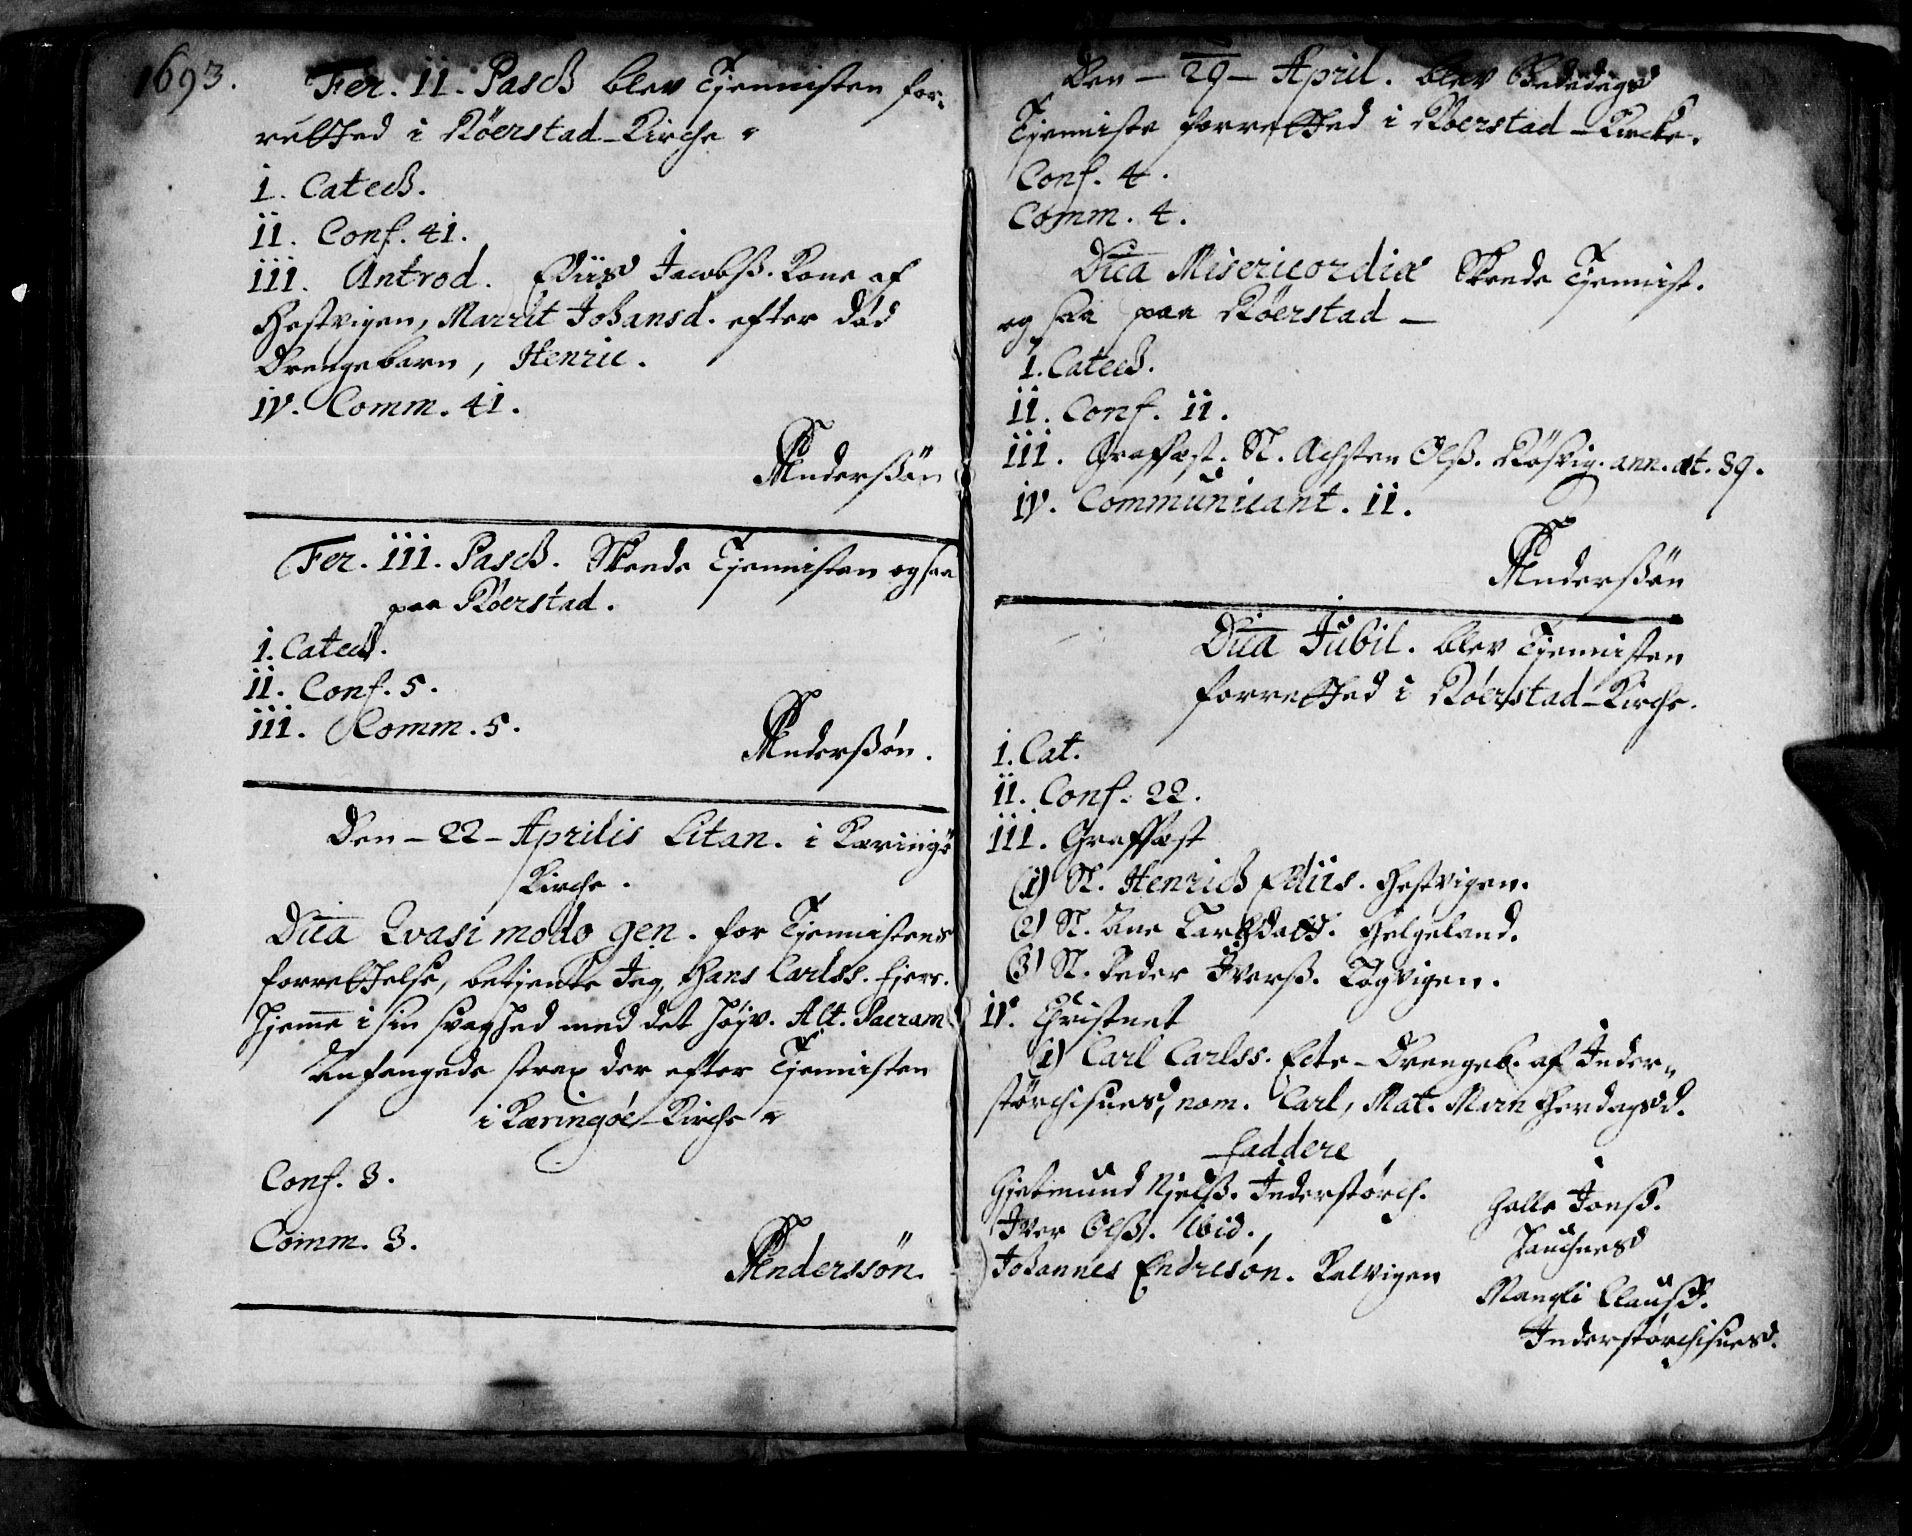 1693.
Fer. II. Pasch blev Tjennisten for-
retted i Röerstad-Kirche
I. Catech.
II. Conf. 41.
III. Introd. Jacobss. Kone af
Hestvigen, Marrit Johansd. efter død
Drengebarn, Henric.
IV. Comm. 41.
Anderssøn
Fer. III. Pasch. Skeede Tjennisten ogsaa
paa Röerstad.
I. Catech.
II. Conf. 5.
III. Comm. 5.
Anderssøn.
Den - 22 - Aprilis Litan. i Kæringö
Kirche.
Dñica Qvasi modo gen. for Tjennistens
forrettelse, betjente Jeg, Hans Carlss.
hjemme i sin svaghed med det høyv. Alt. Sacram
Anfangede strax der efter Tjennisten
i Kæringöe-Kirche
Conf. 3.
Comm. 3.
Anderssön.
Den - 29 - April. blev Bededags
Tjenniste forretted i Röerstad-Kircke.
Conf. 4.
Comm. 4.
Dñica Misericordiæ Skeede Tjennist.
og saa paa Röerstad
I. Catech.
II. Conf. II.
III. Graffæst. Sl. Achsten Olss. Røsvig. ann. æt. 89.
IV. Communicant. II.
Anderssøn
Dñica Jubil. blev Tjennisten
forretted i Röerstad-Kirche.
I. Cat.
II. Conf. 22.
III. Graffæst
(1) Sl. Henrich Hestvigen.
(2) Sl. Ane Helgeland.
(3) Sl. Peder Iverss. Løgvigen.
IV. Christnet
(1) Carl Carlss. Ecte-Drengeb. af Inder-
nom. Carl, Mat. Marn
Faddere
Gjetmund Njelss. Inderstørch.
Iver Olss. ibid.
Johannes Endresøn. Kalvigen
Halle Jonss.
Clauss.